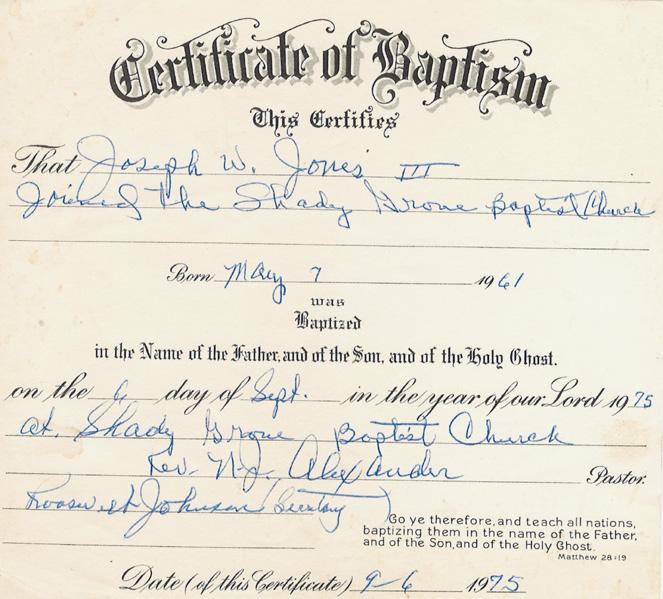 Certificate of Baptism
This Certifies
That Joseph W. Jones III
Joined The Shady Grove Baptist Church
Born May 7 1961
was
Baptized
in the Name of the Father, and of the Son, and of the Holy Ghost.
on the 6 day of Sept. in the year of our Lord 1975
at. Shady Grove Baptist Church
Rev. N.J. Alexander Pastor.
Roosevelt Johnson (Secretary)
Go ye therefore, and teach all nations,
baptizing them in the name of the Father,
and of the Son, and of the Holy Ghost.
Matthew 28:19
Date (of this Certificate) 9-6 1975